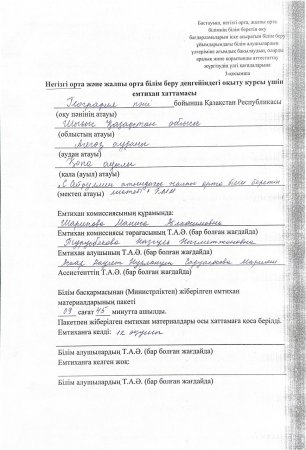 бастауыш, негізгі орта, жалпы орта
білімнің білім беретін оқу
бағдарламаларын іске асыратын білім беру
ұйымдарындағы білім алушылардың
үлгеріміне ағымдық бақылаудың, оларды
аралық және қорытынды аттестаттау
жүргізудің үлгі қағидаларына
3-қосымша
Негізгі орта және жалпы орта білім беру деңгейіндегі оқыту курсы үшін
емтихан хаттамасы
География пәні бойынша Қазақстан Республикасы
(оқу пәнінің атауы)
Шығыс Қазақстан облысы
(облыстың атауы)
Аягөз ауданы
(аудан атауы)
ауылы
(қала (ауыл) атауы)
атындағы жалпы орта білім беретін
(мектеп атауы) мектебі
Емтихан комиссиясының құрамында:
Шарипова
Емтихан комиссиясы төрағасының Т.А.Ә. (бар болған жағдайда)
Емтихан алушының Т.А.Ә. (бар болған жағдайда)
Ассистенттің Т.А.Ә. (бар болған жағдайда)
Білім басқармасынан (Министрліктен) жіберілген емтихан
материалдарының пакеті
09 сағат 45 минутта ашылды.
Пакетпен жіберілген емтихан материалдары осы хаттамаға қоса берілді.
Емтиханға келді: 12 оқушы
Білім алушылардың Т.А.Ә. (бар болған жағдайда)
Емтиханға келген жоқ:
Білім алушылардың Т.А.Ә. (бар болған жағдайда)